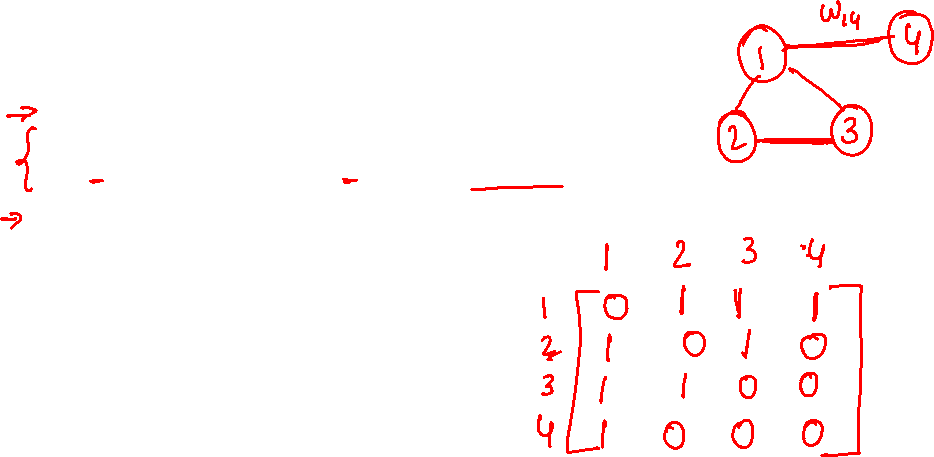 W14
1 4
2 3
1 2 3 4
1 0 1 1 1
2 1 0 1 0
3 1 1 0 0
4 1 0 0 0